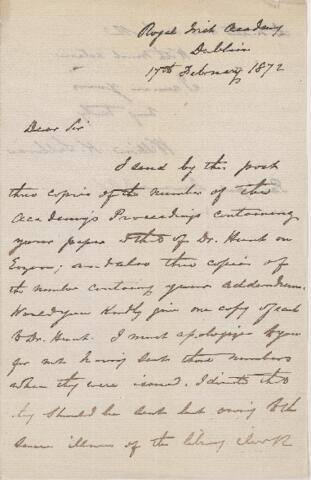 Royal Irish Academy
Dublin
17th February 1872
Dear Sir
I send by this post
three copies of the number of the
Academy's Proceedings containing
your paper & that of Dr. Hunt on
Eozoon; and also three copies of
the number containing your Addendum.
Would you kindly give one copy of each
to Dr. Hunt. I must apologize to you
for not having sent those numbers
when they were issued. I directed that
they should be sent but owing to the
severe illness of the library clerk